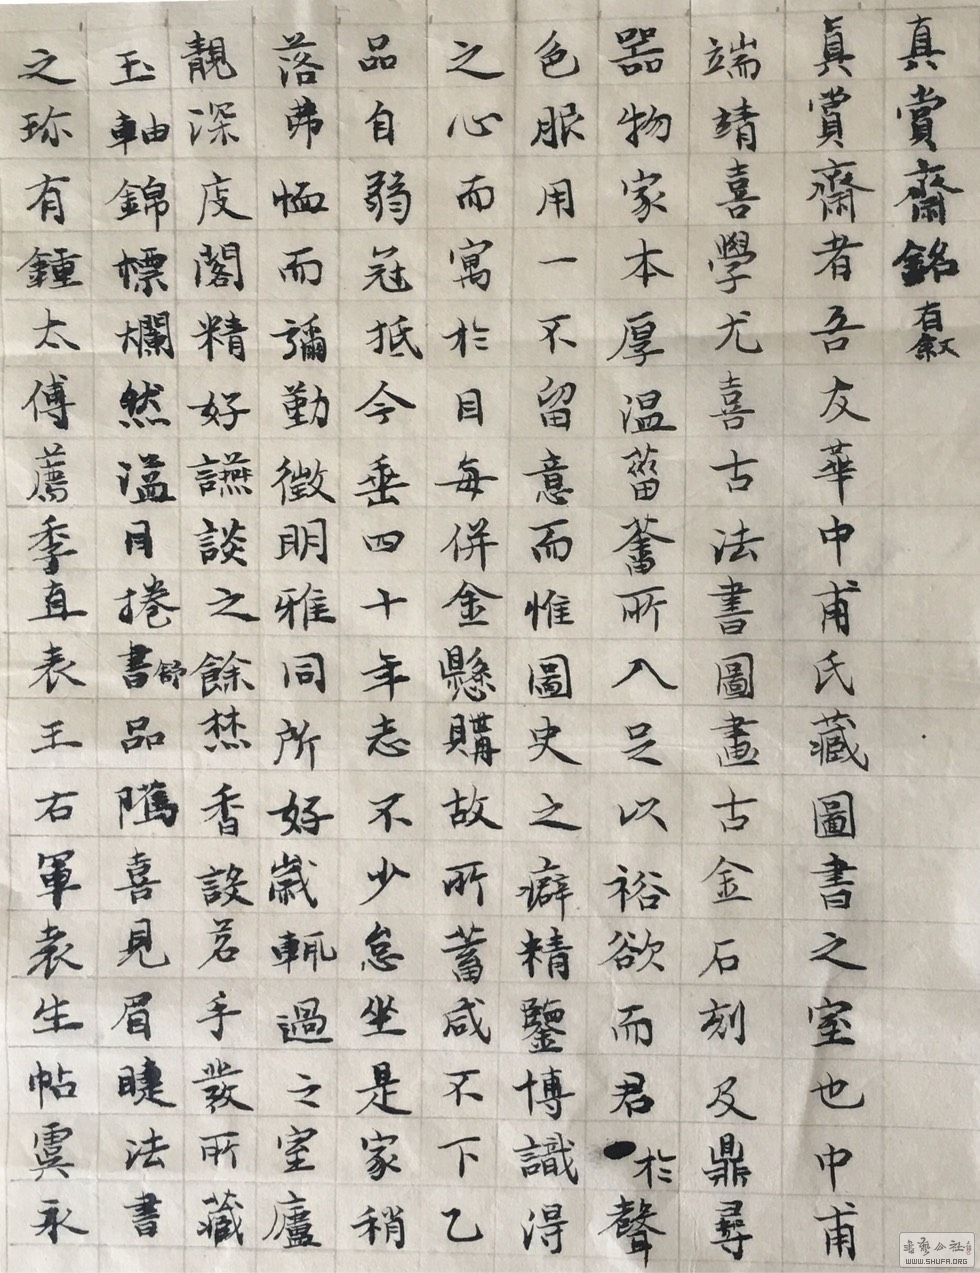 真賞齋銘有叙
眞賞齋者吾友華中甫氏藏圖書之室也中甫
端靖喜學尤喜古法書圖畫古金石刻及鼎尋
器物家本厚温菑畬所入足以裕欲而君於聲
色服用一不留意而惟圖史之癖精鑒博識得
之心而寓於目每併金懸購故所蓄咸不下乙
品自弱冠抵今垂四十年志不少怠坐是家稍
落弗恤而彌勤徵明雅同所好歲輒過之室廬
靚深庋閣精好讌談之餘焚香設茗手發所藏
玉軸錦標爛然溢目捲書舒品隲喜見眉睫法書
之珎有鍾太傅薦季直表王右軍袁生帖虞永
書藝公社
WWW.SHUFA.ORG